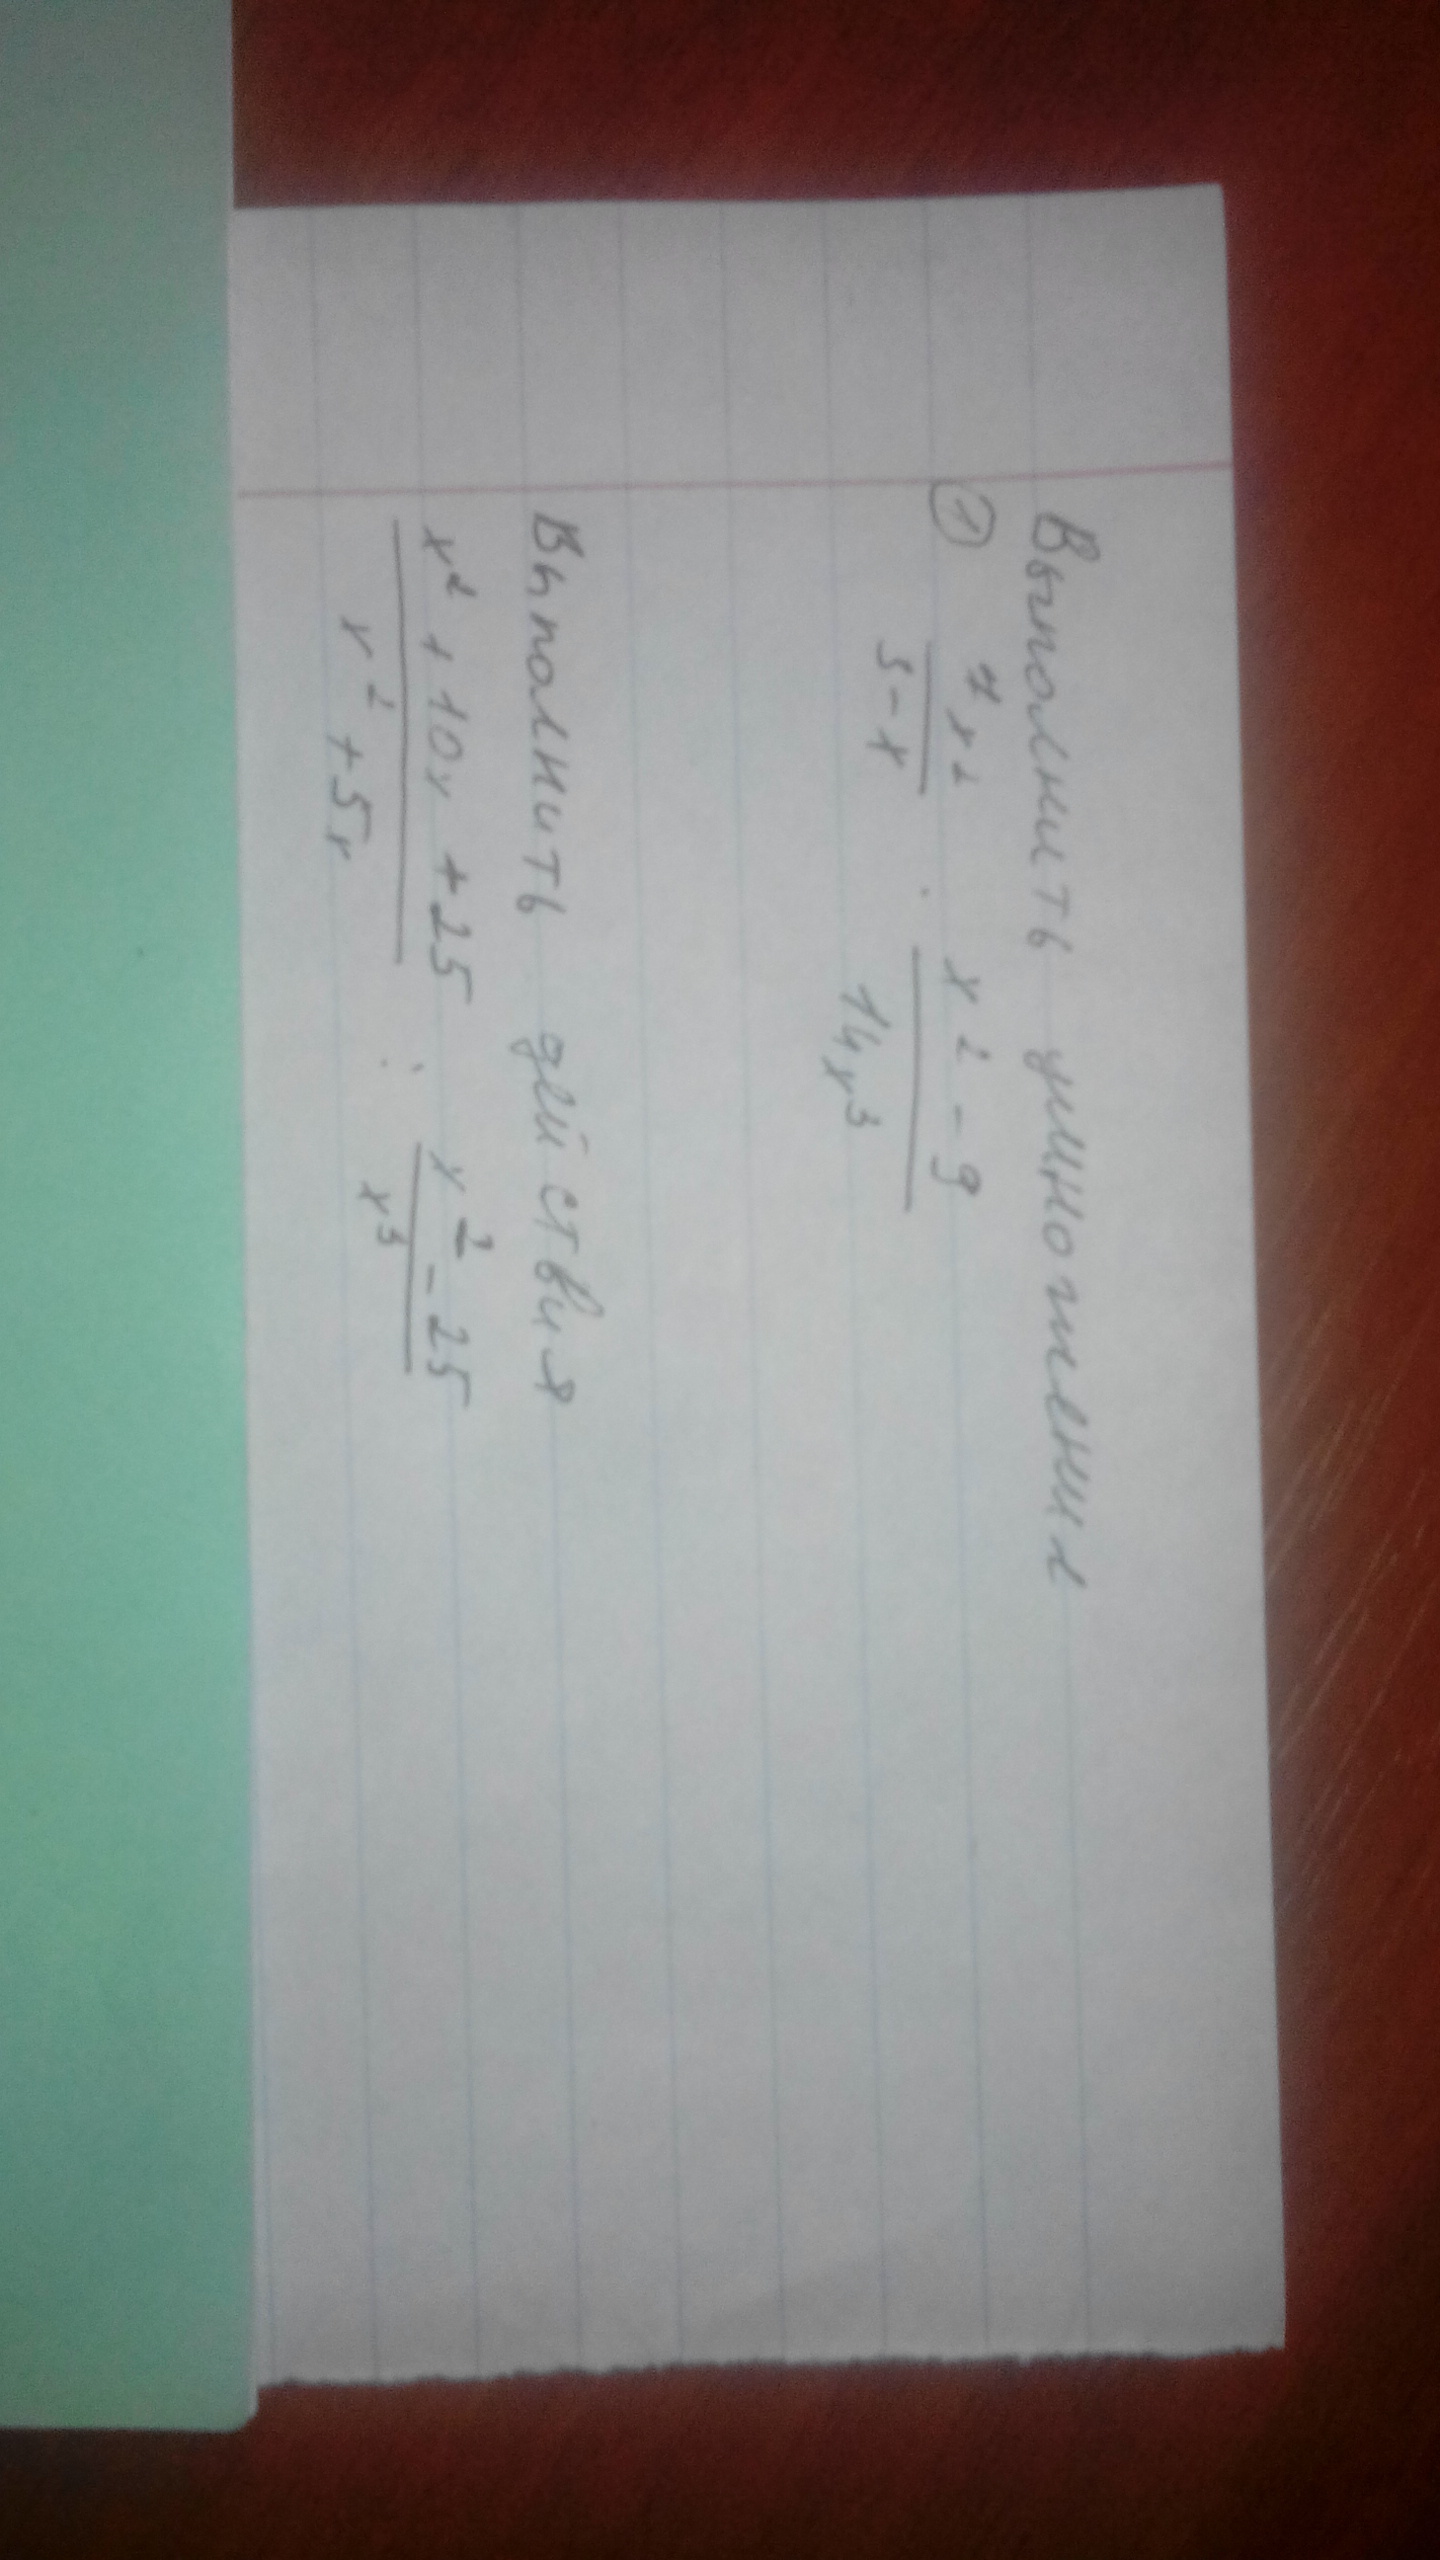 Выполнить умножения
① 7x² / 3-x · x² - 9 / 14x³
Выполнить действия
x² + 10x + 25 / x² + 5x : x² - 25 / x³